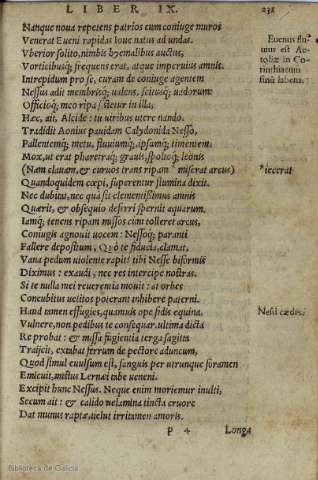 LIBER IX.
231
Nanque noua repetens patrios cum coniuge muros
Venerat Eueni rapidas Ioue natus ad undas.
Vberior solito, nimbis hyemalibus auctus,
Vorticibusq; frequens erat, atque imperuius amnis.
Intrepidum pro se, curam de coniuge agentem
Nessus adit membrisq; ualens, scitusq; uadorum:
Officioq; meo ripa sistetur in illa,
Hæc, ait, Alcide: tu uiribus utere nando.
Tradidit Aonius pauidam Calydonida Nesso,
Pallentemq; metu, fluuiumq; ipsumq; timentem.
Mox, ut erat pharetraq; grauis, spolioq; leonis
(Nam clauam, & curuos trans ripam *miserat arcus)
Quandoquidem cœpi, superentur flumina dixit.
Nec dubitat, nec quà sit clementissimus amnis
Quærit, & obsequio deferri spernit aquarum.
Iamq; tenens ripam missos cum tolleret arcus,
Coniugis agnouit uocem: Nessoq; paranti
Fallere depositum, Quò te fiducia, clamat,
Vana pedum uiolente rapit? tibi Nesse biformis
Diximus: exaudi, nec res intercipe nostras.
Si te nulla mei reuerentia mouit: at orbes
Concubitus uetitos poterant inhibere paterni.
Haud tamen effugies, quamuis ope fidis equina.
Vulnere, non pedibus te consequar. ultima dicta
Re probat: & missa fugientia terga sagitta
Traijcit, extabat ferrum de pectore aduncum,
Quod simul euulsum est, sanguis per utrunque foramen
Emicuit, mistus Lernæi tabe ueneni.
Excipit hunc Nessus. Neque enim moriemur inulti,
Secum ait: & calido uelamina tincta cruore
Dat munus raptæ, uelut irritamen amoris.
P 4
Longa
Euenus flu
uius est Ae-
toliæ in Co-
rinthiacum
sinũ labens.
*iecerat
Nessi cædes.
Biblioteca de Galicia